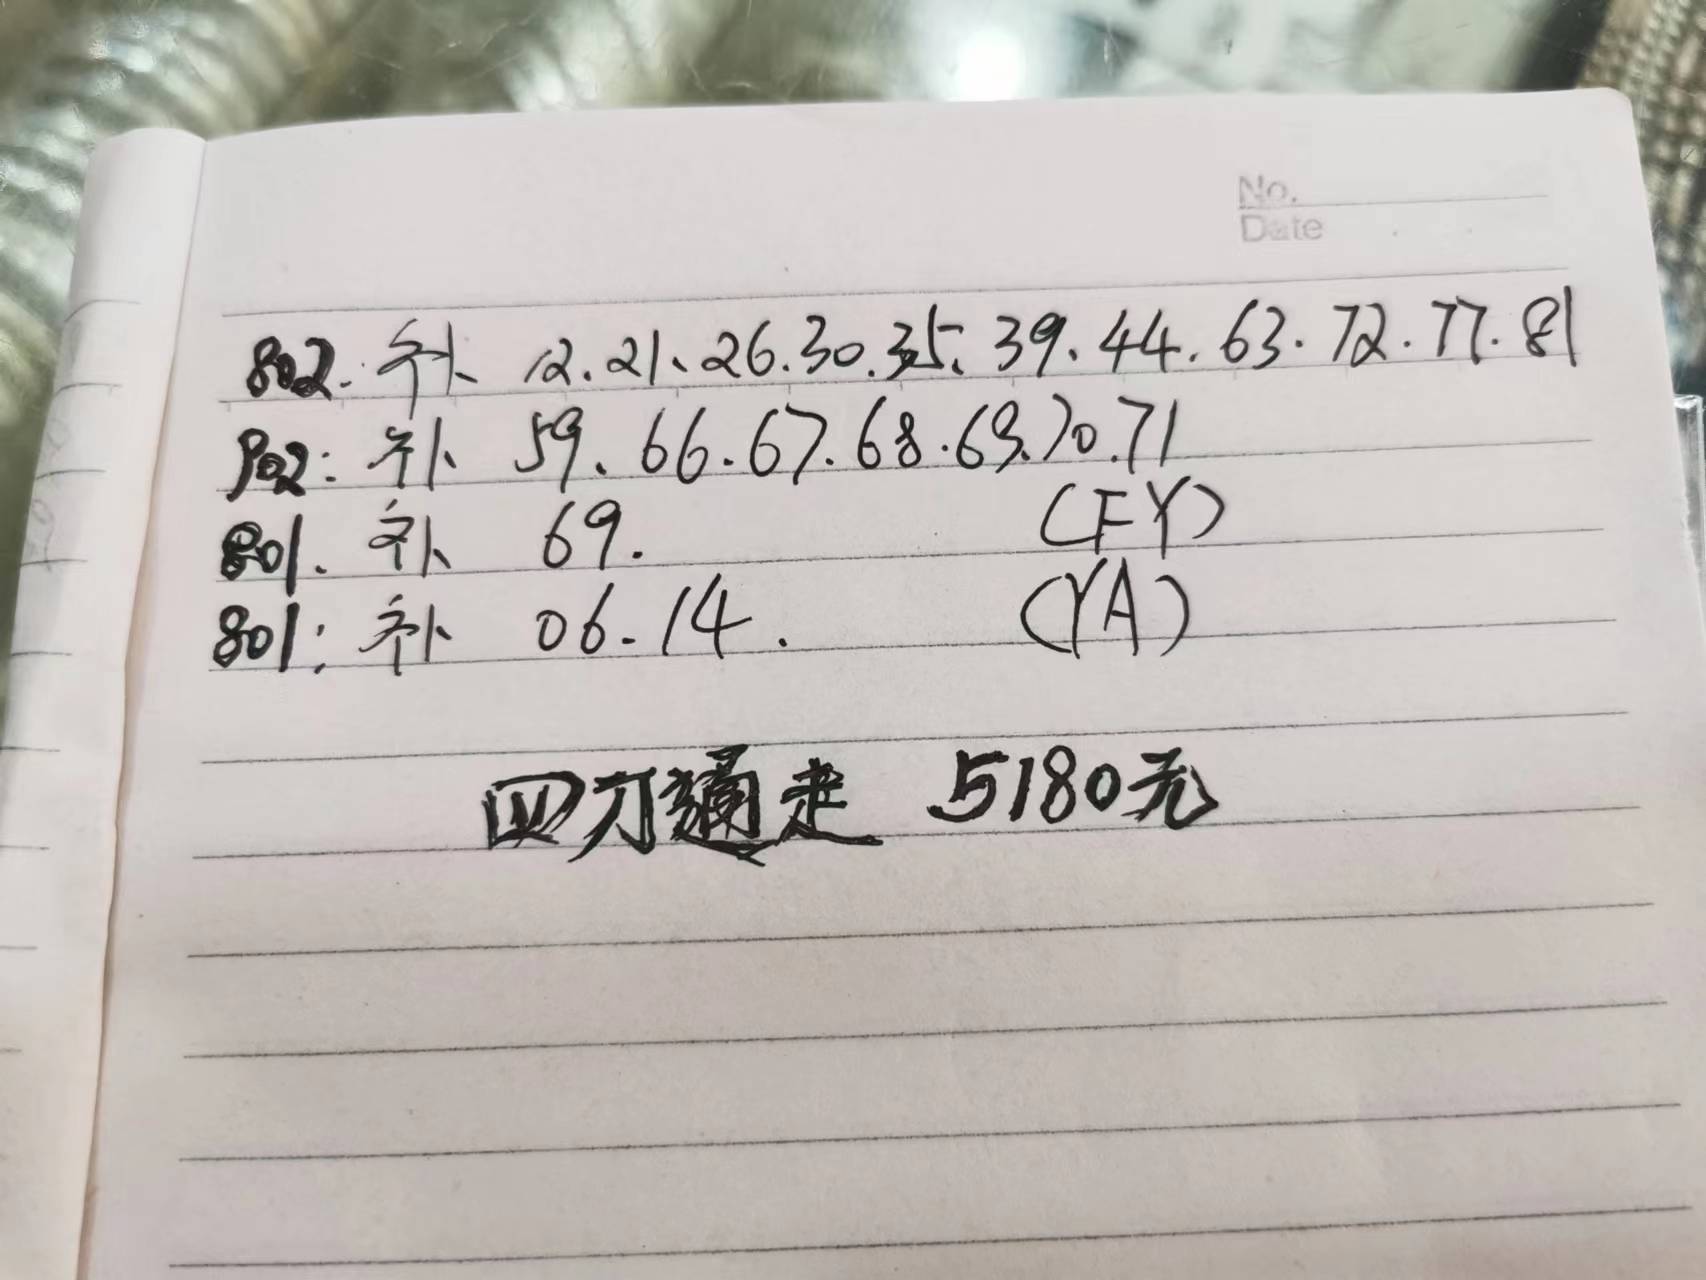 No.
Date
802. 补 12.21、26.30.35、39.44.63.72.77.81
902: 补 59、66.67.68.69.70.71
801. 补 69. (FY)
801: 补 06.14. (YA)
四刀通走 5180元